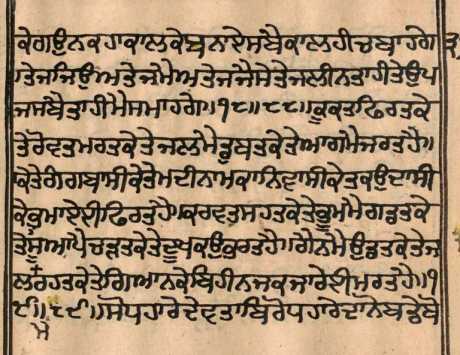 ਕੇਗਉਨਕਹਾਕਾਲਕੇਬਨਾਏਸਬੈਕਾਲਹੀਚਬਾਹਗੇ
ਤੇਜਜਿਉਅਤੇਜਮੈਅਤੇਜਜੈਸੇਤੇਜਲੀਨਤਾਹੀਤੇਉਪ
ਜਸਬੈਤਾਹੀਮੈਸਮਾਹਗੇ॥੧੮॥੮੮॥ਕੂਕਤਫਿਰਤਕੇ
ਤੇਰੋਵਤਮਰਤਕੇਤੇਜਲਮੈਡੁਬਤਕੇਤੇਆਗਮੈਜਰਤਹੈ॥
ਕੇਤੇਗੰਗਬਾਸੀਕੇਤੇਮਦੀਨਾਮਕਾਨਿਵਾਸੀਕੇਤਕਉਦਾਸੀ
ਕੇਭ੍ਰਮਾਏਈਫਿਰਤਹੈ॥ਕਰਵਤਸਹਤਕੇਤੇਭੂਮਮੈਗਡਤਕੇ
ਤੇਸੂਆਪੈਚੜਤਕੇਤੇਦੂਖਕਉਭਰਤਹੈ॥ਗੈਨਮੈਉਡਤਕੇਤੇਜ
ਲਰਹਤਕੇਤੇਗਿਆਨਕੇਬਿਹੀਨਜਕਜਾਰੇਈਮਰਤਹੈ॥੧
੯॥੮੯॥ਸੋਧਹਾਰੇਦੇਵਤਾਬਿਰੋਧਹਾਰੇਦਾਨੋਬਡੇਬੋ
ਮੈ